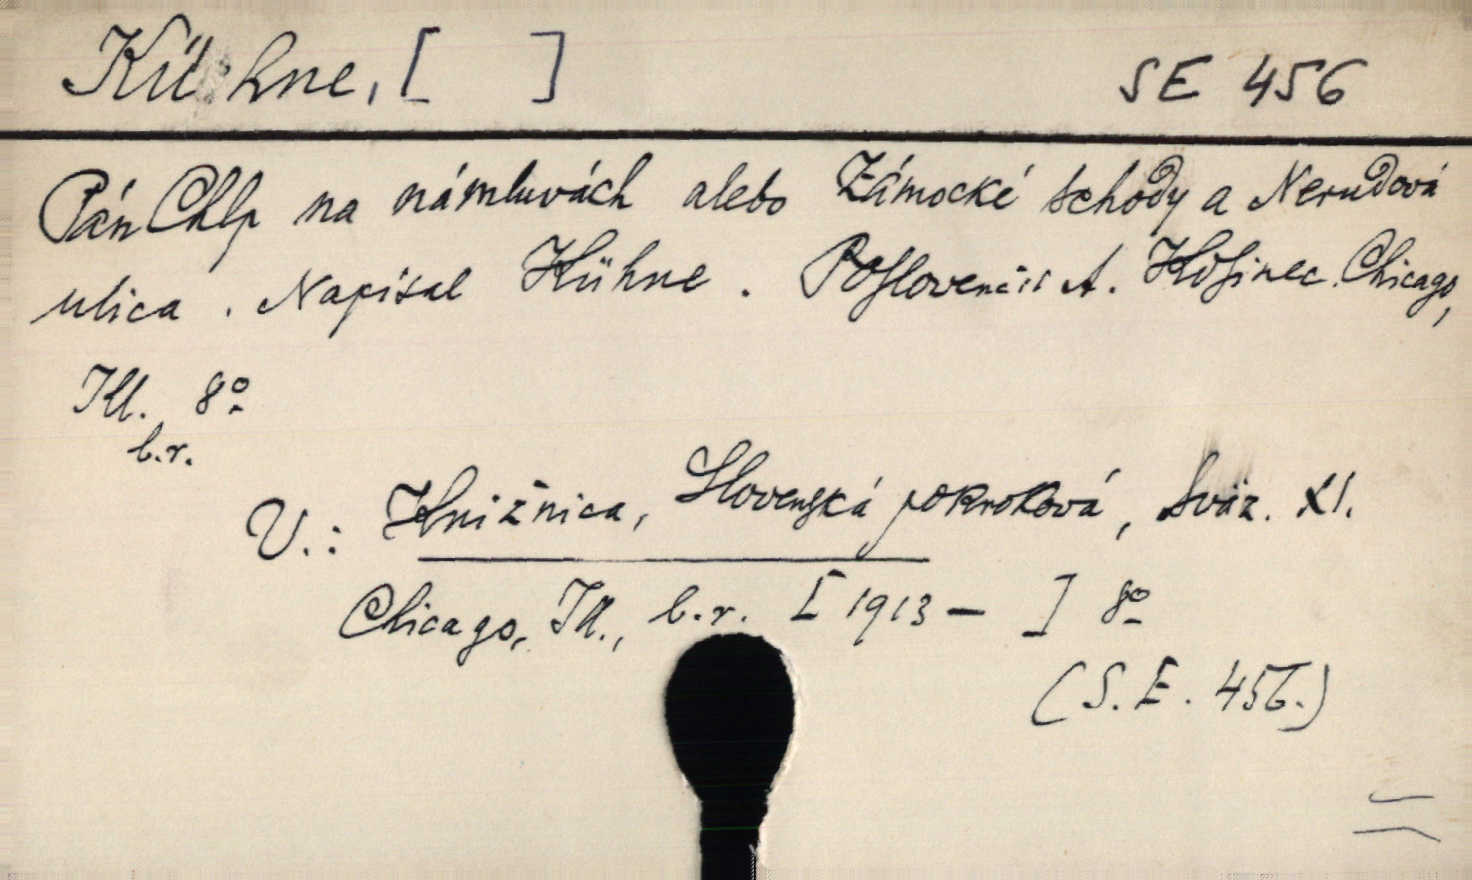 Kühne, [ ] SE 456
Pán Chlp na námluvách alebo Zámocké schody a Nerudová
ulica. Napísal Kühne. Poslovenčil A. Kosinec. Chicago,
Ill. 8º
b.r.
V.: Knižnica, Slovenská pokroková, Sväz. XI.
Chicago, Ill., b.r. [1913 — ] 8º
(S.E. 456.)